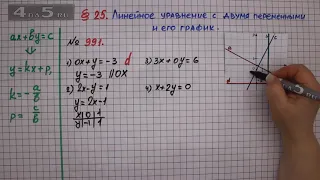 4на5.ru
§ 25. Линейное уравнение с двумя переменными и его график.
ax+by=c
⇓
y=kx+p,
k=-a/b
p=c/b
№ 991.
1) 0x+y=-3 d
y=-3 ||OX
2) 2x-y=1
y=2x-1
x|0|1
y|-1|1
3) 3x+0y=6
4) x+2y=0